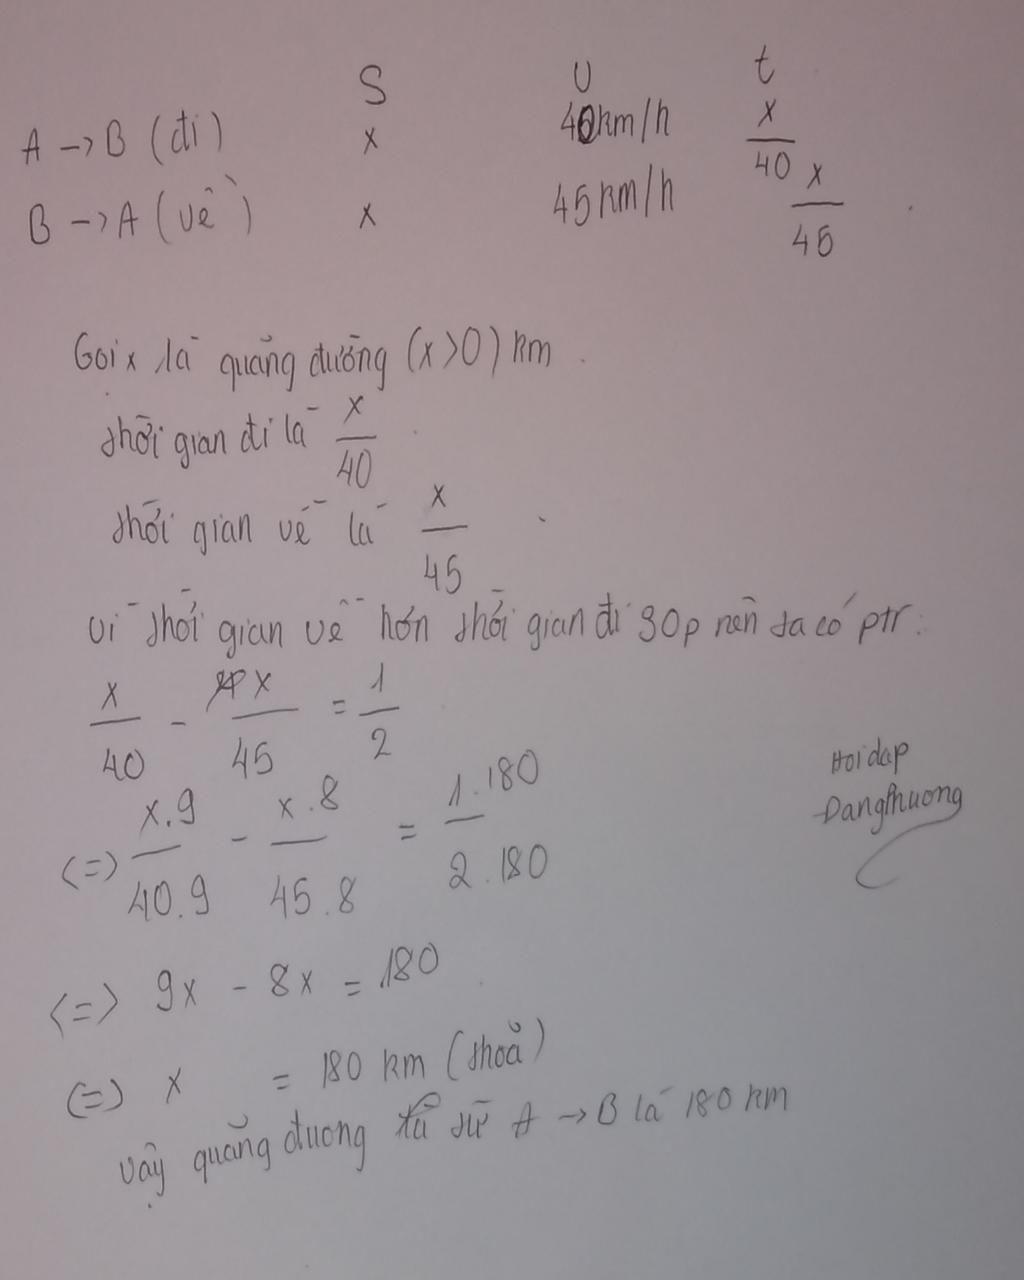 S U t
A -> B (đi) x 40km/h x/40
B -> A (về) x 45km/h x/45
Gọi x là quãng đường (x>0) km.
thời gian đi là x/40
thời gian về là x/45
vì thời gian về hơn thời gian đi 30p nên ta có ptr:
x/40 - x/45 = 1/2
(=) x.9/40.9 - x.8/45.8 = 1.180/2.180
<=> 9x - 8x = 180
(=) x = 180 km (thoả)
vậy quãng đương từ A -> B là 180 km
Hoidap
DangPhuong